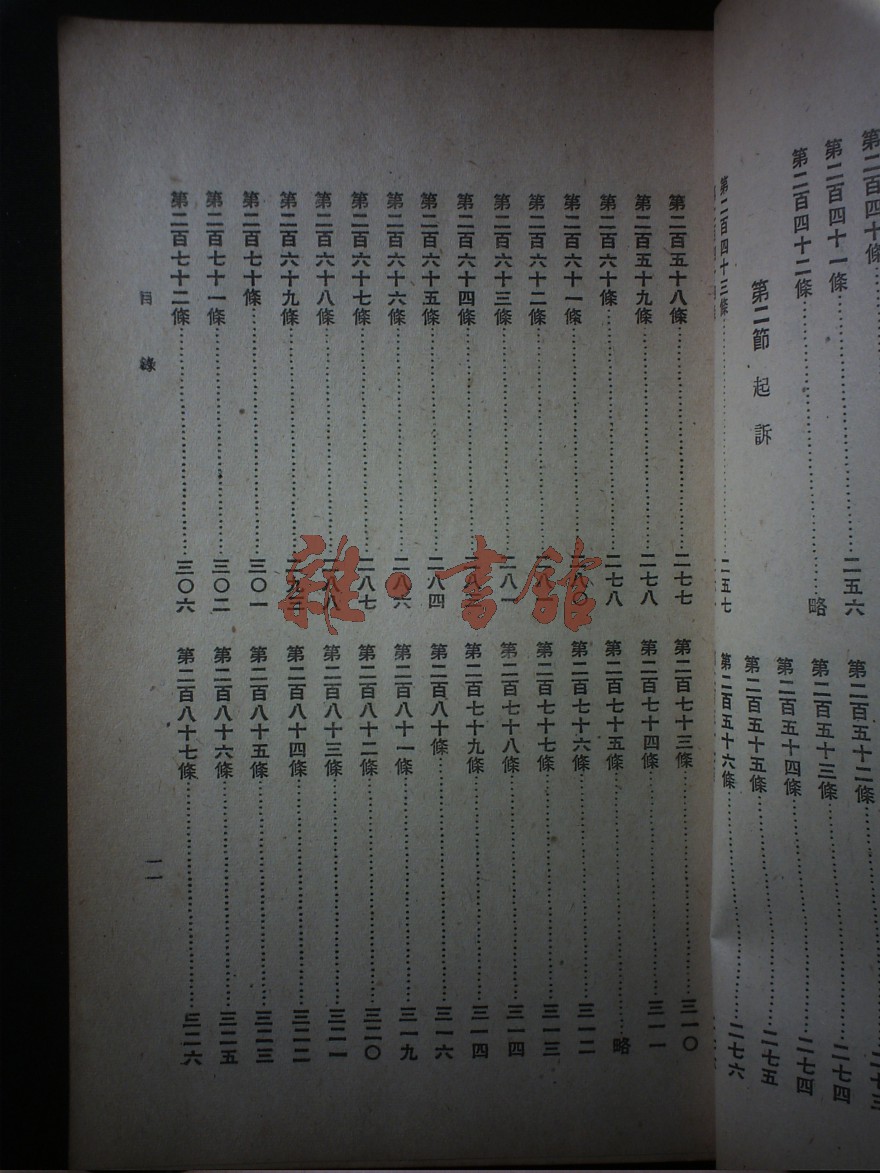 第二百四十條
第二百四十一條……二五六
第二百四十二條……略
第二節 起訴
第二百四十三條……二五七
第二百五十二條……二七三
第二百五十三條……二七四
第二百五十四條……二七四
第二百五十五條……二七五
第二百五十六條……二七六
第二百五十八條……二七七
第二百五十九條……二七八
第二百六十條……二七八
第二百六十一條……二八〇
第二百六十二條……
第二百六十三條……二八一
第二百六十四條……
第二百六十五條……二八四
第二百六十六條……二八六
第二百六十七條……二八七
第二百六十八條……二八八
第二百六十九條……
第二百七十條……三〇一
第二百七十一條……三〇二
第二百七十二條……三〇六
第二百七十三條……三一〇
第二百七十四條……三一一
第二百七十五條……略
第二百七十六條……三一二
第二百七十七條……三一三
第二百七十八條……三一四
第二百七十九條……三一四
第二百八十條……三一六
第二百八十一條……三一九
第二百八十二條……三二〇
第二百八十三條……三二一
第二百八十四條……三二二
第二百八十五條……三二三
第二百八十六條……三二五
第二百八十七條……三二六
目錄
一一
雜·書館